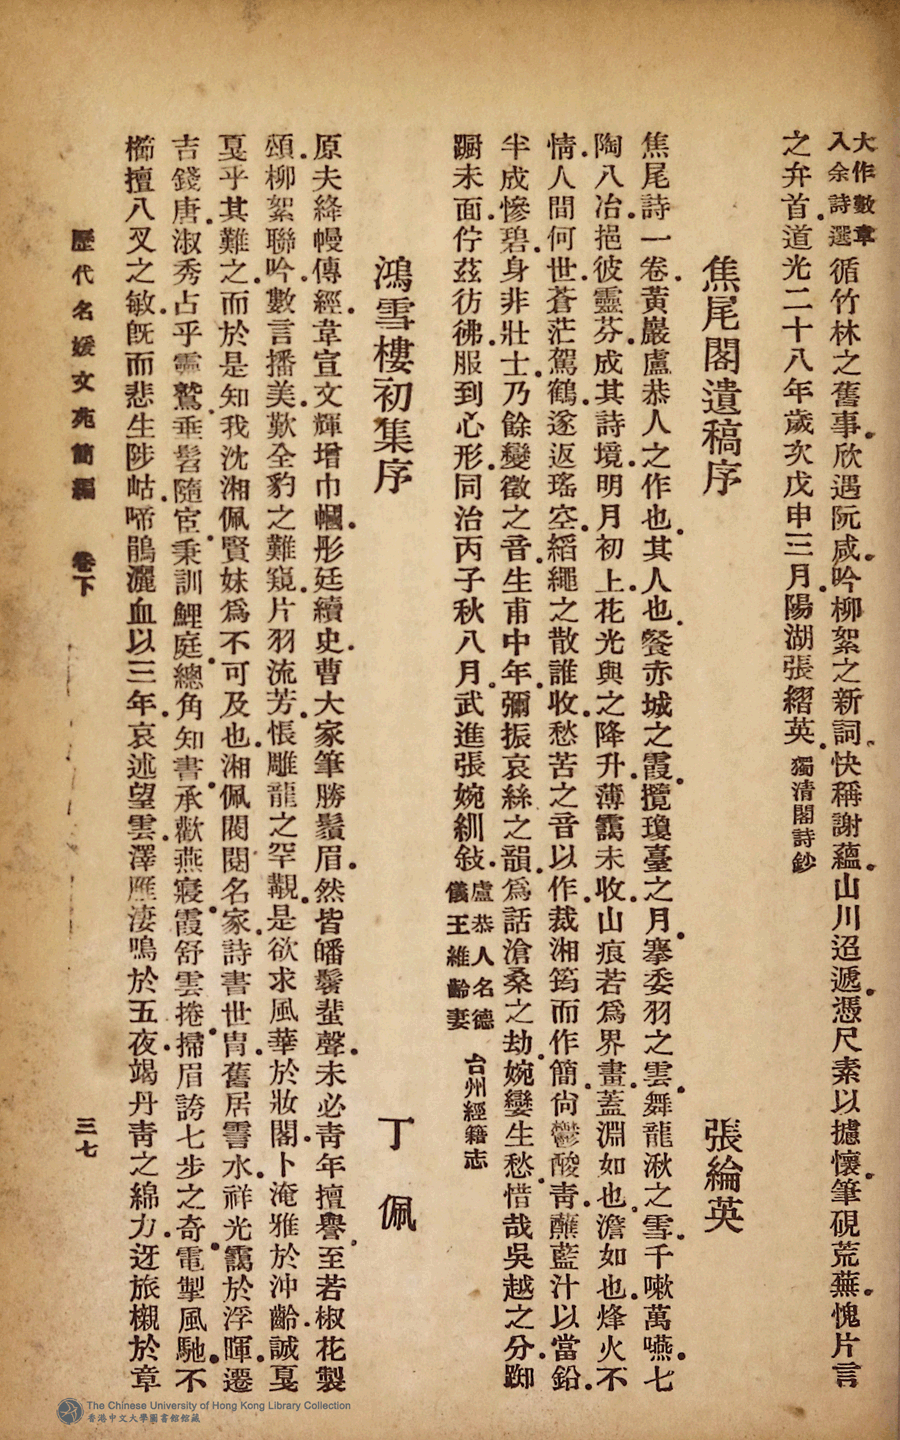 大作數章
入余詩選
循竹林之舊事。欣遇阮咸。吟柳絮之新詞。快稱謝蘊。山川迢遞。憑尺素以攄懷。筆硯荒蕪。愧片言
之弁首。道光二十八年歲次戊申三月。陽湖張䌌英。獨清閣詩鈔
焦尾閣遺稿序 張綸英
焦尾詩一卷。黃巖盧恭人之作也。其人也。餐赤城之霞。攬瓊臺之月。搴委羽之雲。舞龍湫之雪。千嗽萬嚥。七
陶八冶。挹彼靈芬。成其詩境。明月初上。花光與之降升。薄靄未收。山痕若爲界畫。蓋淵如也。澹如也。烽火不
情。人間何世。蒼茫駕鶴。遂返瑤空。縚繩之散誰收。愁苦之音以作。裁湘筠而作簡。尙鬱酸靑。蘸藍汁以當鉛。
半成慘碧。身非壯士。乃餘變徵之音。生甫中年。彌振哀絲之韻。爲話滄桑之劫。婉孌生愁。惜哉吳越之分。踟
蹰未面。佇茲彷彿。服到心形。同治丙子秋八月。武進張婉紃敍。
盧恭人名德
儀王維齡妻
台州經籍志
鴻雪樓初集序 丁佩
原夫絳幔傳經。韋宣文輝增巾幗。彤廷續史。曹大家筆勝鬚眉。然皆皤鬢蜚聲。未必靑年擅譽。至若椒花製
頌。柳絮聯吟。數言播美。歎全豹之難窺。片羽流芳。悵雕龍之罕覯。是欲求風華於妝閣。卜淹雅於沖齡。誠戛
戛乎其難之。而於是知我沈湘佩賢妹爲不可及也。湘佩閥閱名家。詩書世冑。舊居霅水。祥光靄於浮暉。遷
吉錢唐。淑秀占乎靈鷲。垂髫隨宦。秉訓鯉庭。總角知書。承歡燕寢。霞舒雲捲。掃眉誇七步之奇。電掣風馳。不
櫛擅八叉之敏。旣而悲生陟岵。啼鵑灑血以三年。哀述望雲。澤雁淒鳴於五夜。竭丹靑之綿力。迓旅櫬於章
歷代名媛文苑簡編 卷下 三七
The Chinese University of Hong Kong Library Collection
香港中文大學圖書館館藏